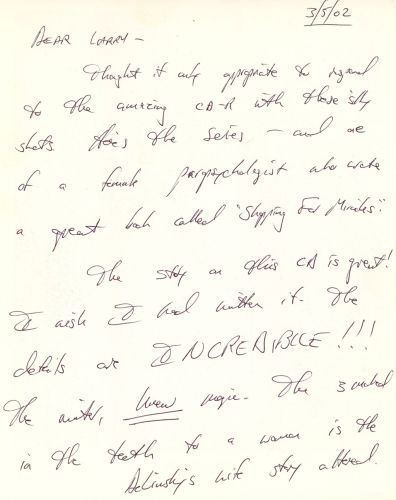 3/5/02
DEAR LARRY –
Thought it only appropriate to respond
to the amazing CD-R with these silly
shots. Here's the series – and one
of a female parapsychologist who wrote
a great book called "Shopping For Miracles".
The story on this CD is great!
I wish I had written it. The
details are INCREDIBLE!!!
The writer, knew magic. The 3 marked
in the teeth to a woman is the
Delinsky's wife story altered.